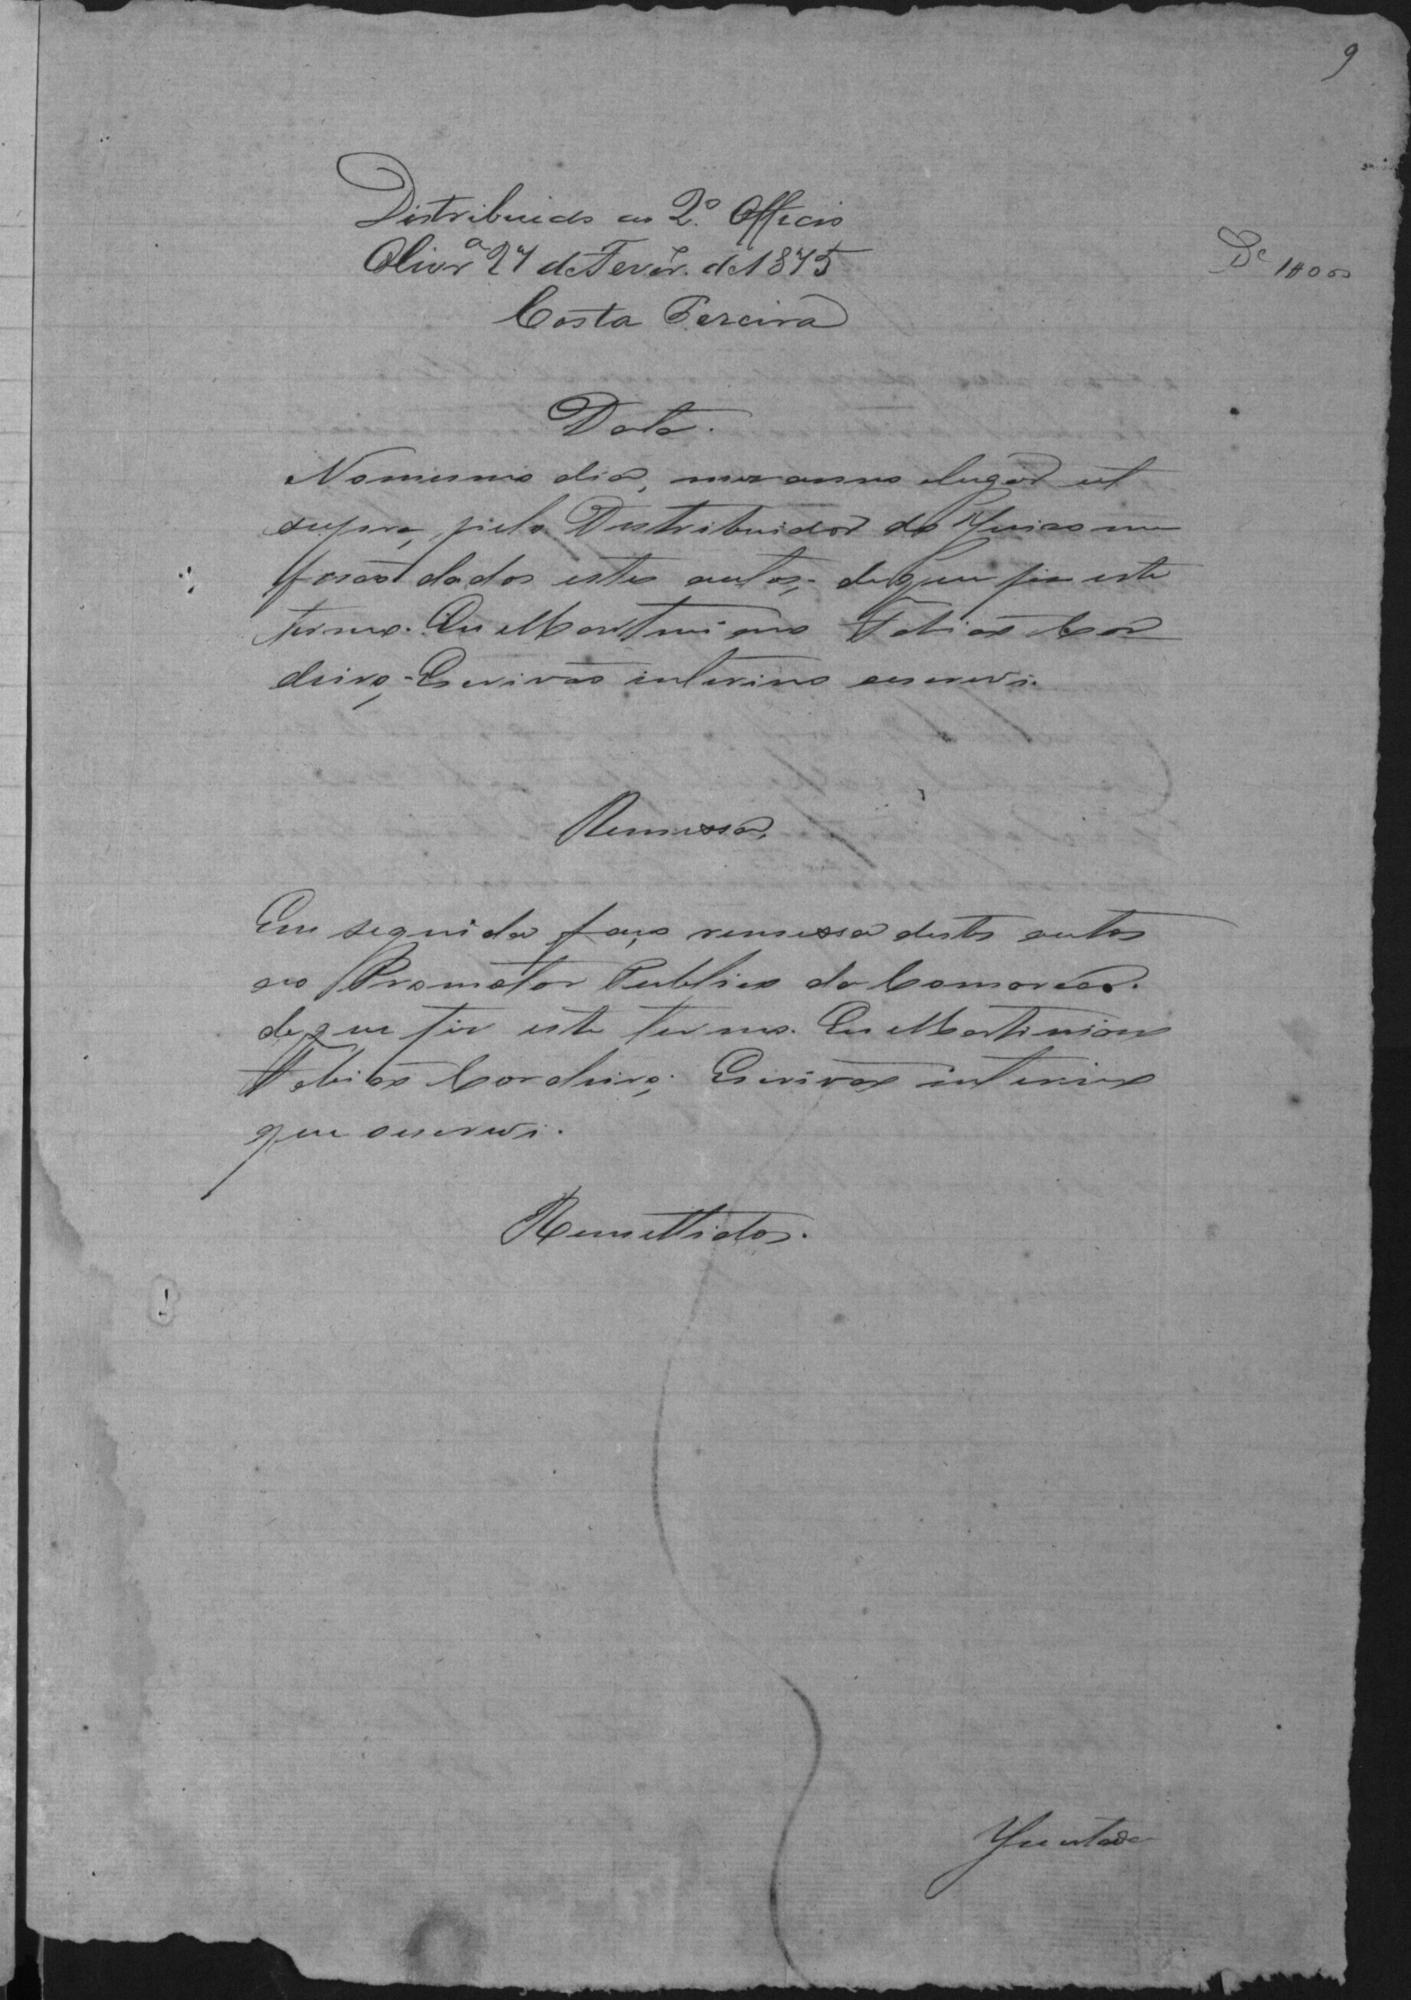 9
Distribuido ao 2º Officio
Olivrª 27 de Feverº. de 1875
Costa Pereira
De 1$000
Data.
No mesmo dia, mez anno e lugar ut
supra, pelo Distribuidor do Juizo me
forão dados estes autos, de que fiz este
termo. Eu Martiniano Tobias Cor
deiro, Escrivão interino escrevi.
Remessa,
Em seguida faço remessa destes autos
ao Promotor Publico da Comarca.
de que fiz este termo. Eu Martiniano
Tobias Cordeiro, Escrivão interino
que escrevi.
Remettidos.
Juntada